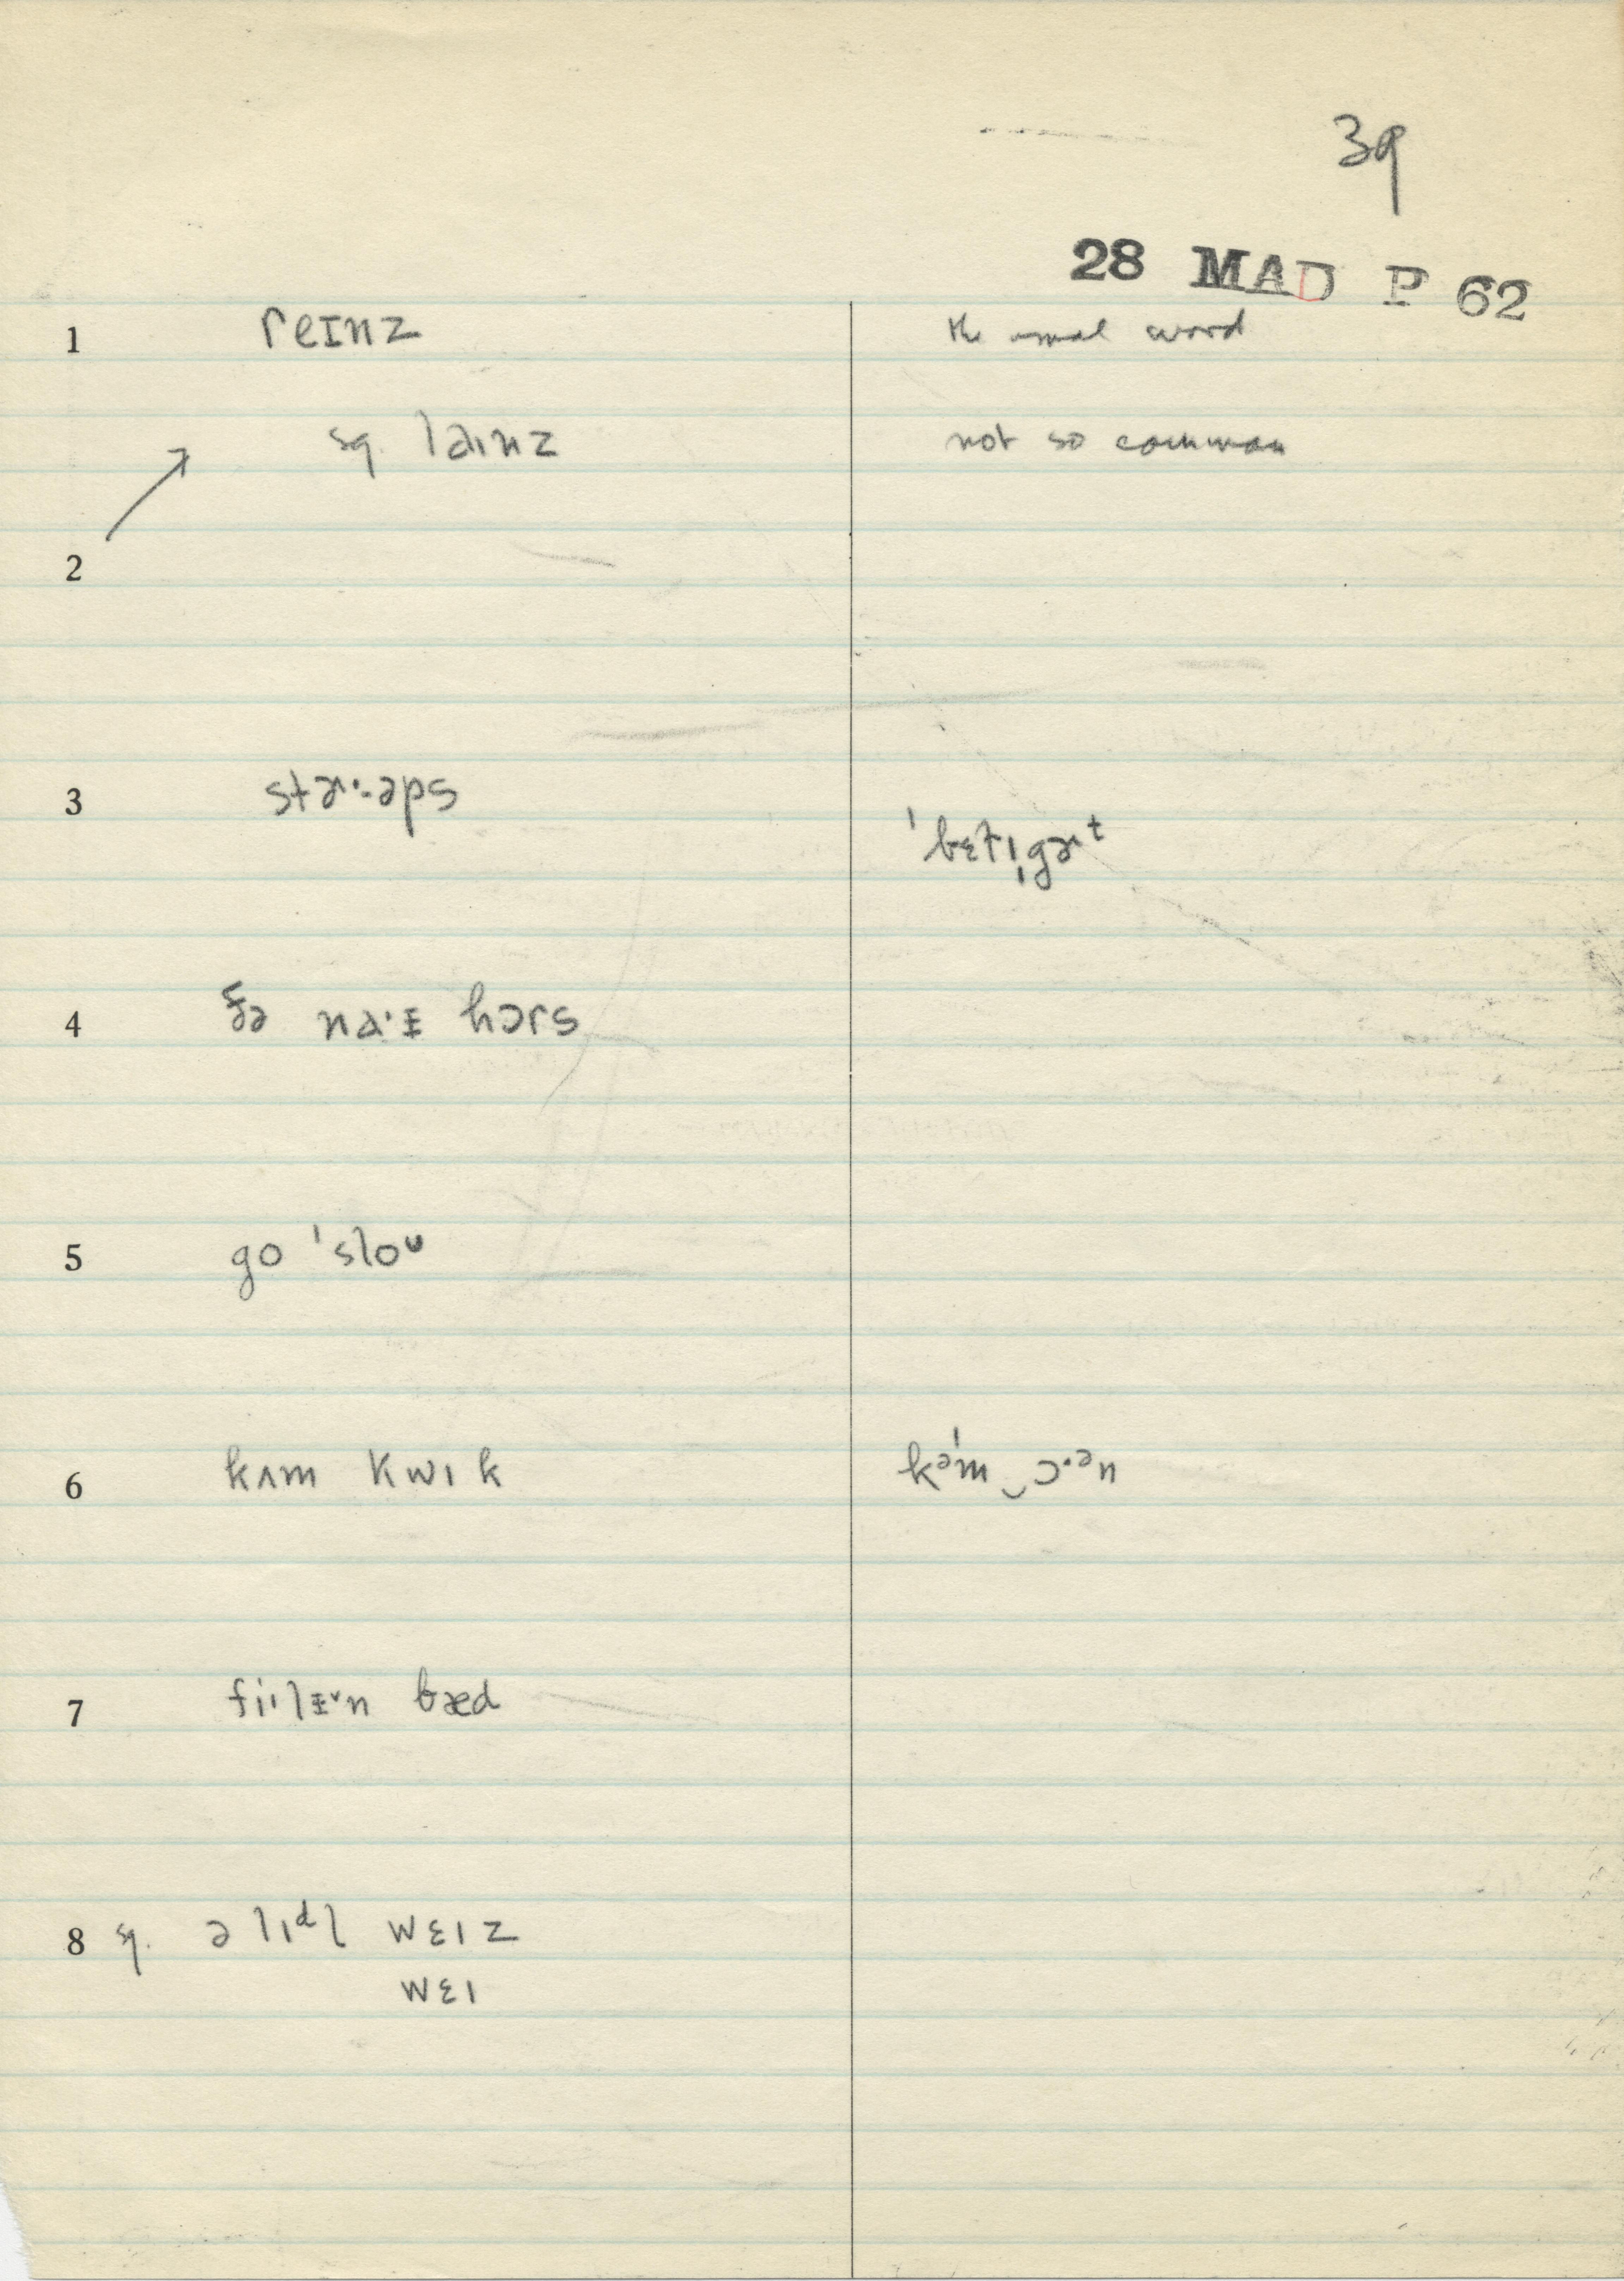 39
28 MAD P 62
1 reɪnz the usual word
sq. laɪnz not so common
2
3 stɚ·-əps
ˈbɛtɪˌgɚt
4 ðə na·ɪ hɔrs
5 go ˈsloᴜ
6 kʌm kwɪk kəˈm‿ɔ·ən
7 fi·lɪ˅n bæd
8 sq. ə lɪᵈl wɛɪz
wɛɪ